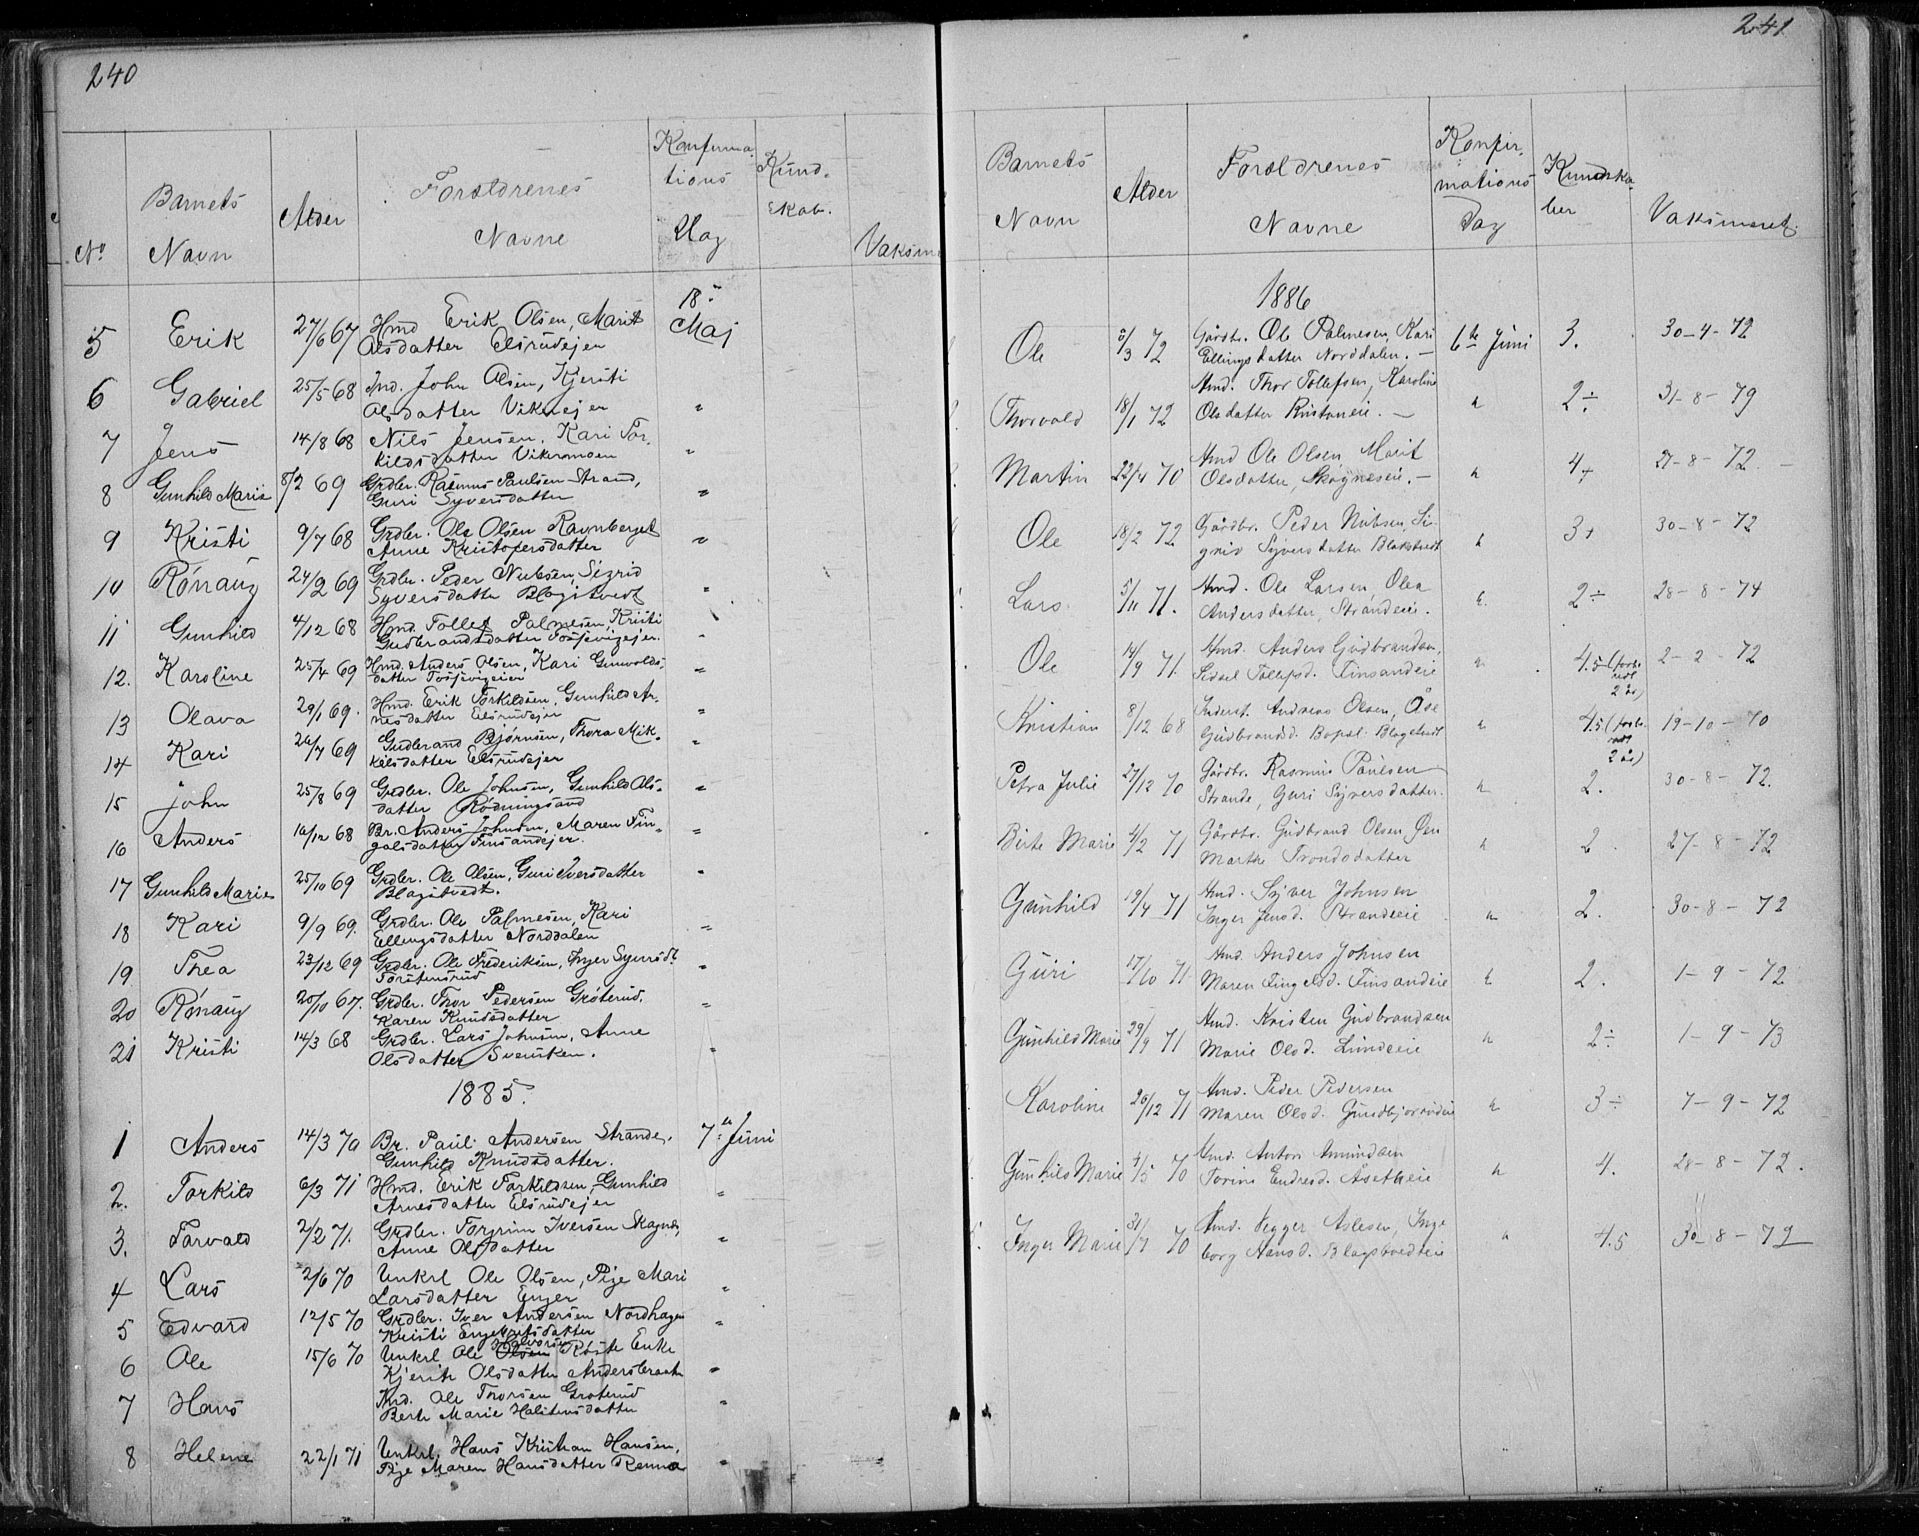 240
Konfirma
tions
Dag
Kund-
skab.
No
Barnets
Navn
Alder
Forældrenes
Navne
Vaksine
18.
5 Erik 27/6 67 Hmd Erik Olsen, Marit Maj
Olsdatter Elsrudejer
6 Gabriel 25/5 68 Ind. John Olsen, Kjersti
Olsdatter Vikenejer "
7 Jens 14/8 68 Nils Jensen, Kari Tor-
kildsdatter Vikermoen "
8 Gunhild Marie 8/2 69 Grdbr. Rasmus Paulsen Strand,
Guri Syversdatter "
9 Kristi 9/7 68 Grdbr. Ole Olsen Ravnberget
Anne Kristofersdatter "
10 Rönaug 24/2 69 Grdbr. Peder Nubsen, Sigrid
Syversdatter Blagstvedt "
11 Gunhild 4/12 68 Hmd. Tollef Palmesen, Kristi
Gudbrandsdatter Tossevigejer. "
12. Karoline 25/4 69 Hmd. Anders Olsen, Kari Gunvolds-
datter Tossevigeier "
13 Olava 29/1 69. Hmd. Erik Torkildsen, Gunhild Ar-
nesdatter Elsrudejer "
14 Kari 26/7 69 Gudbrand Bjørnsen, Thora Mik-
kelsdatter Elsrudejer "
15 John 25/8 69 Grdbr. Ole Johnsen, Gunhild Ols-
datter Rödningsand "
16 Anders 16/12 68 Br. Anders Johnsen, Maren Fin-
galsdatter Finsandejer. "
17 Gunhild Marie 25/10 69 Grdbr. Ole Olsen, Guri Iversdatter
Blagstvedt. "
18 Kari 9/9 69. Grdbr. Ole Palmesen, Kari
Ellingsdatter Norddalen "
19 Thea 23/12 69 Grdbr. Ole Frederiksen, Inger Syversdt.
Torstensrud "
20 Rönaug 20/10 67. Grdbr. Thor Pedersen Gröterud,
Karen Knudsdatter "
21 Kristi 14/3 68 Grdbr. Lars Johnsen, Anne
Olsdatter Svensken. "
1885.
1 Anders 14/3 70 Br. Paul Andersen Strande, 7de Juni
Gunhild Knudsdatter.
2. Torkild 6/3 71 Hmd. Erik Torkildsen, Gunhild
Arnesdatter Elsrudejer "
3. Torvald 2/2 71. Grdbr. Torgrim Iversen Skagnes,
Anne Olsdatter "
4 Lars 2/6 70 Unkrl Ole Olsen, Pige Mari
Larsdatter Enger "
5 Edvard 12/5 70 Grdbr. Iver Andersen Nordhagen
Kristi Engebretsdatter "
6 Ole 15/6 70 Unkrl Ole Olsen Halvorsen Röste Enke
Kjersti Olsdatter Andersbraaten "
7 Hans Hmd. Ole Thorsen Groterud
Berte Marie Halstensdatter "
8 Helene 22/1 71 Unkrl. Hans Kristian Hansen,
Pige Maren Hansdatter Renna "
241
Barnets
Navn
Alder
Forældrenes
Navne
Konfir-
mations
Dag
Kundska
ber
Vaksineret.
1886
Ole 8/3 72 Gårdbr. Ole Palmesen, Kari 6te Juni 3. 30-4-72
Ellingsdatter Norddalen. —
Thorvald 18/1 72 Hmd. Thor Tollefsen, Karoline
Olsdatter Ristaneie. — " 2÷ 31-8-79
Martin 22/4 70 Hmd Ole Olsen Marit
Olsdatter, Skagneseie. — " 4+ 27-8-72 —
Ole 18/2 72 Gårdbr. Peder Nubsen, Si-
grid Syversdatter Blakstvedt " 3+ 30-8-72
Lars 5/11 71. Hmd. Ole Larsen, Olea
Andersdatter, Strandeie. " 2÷ 28-8-74
Ole 14/9 71. Hmd. Anders Gudbrandsen,
Sidsel Tollefsd. Finsandeie " 4.5 (forbe
redt
2 år) 2-2-72
Kristian 8/12 68 Inderst. Andreas Olsen, Åse
Gudbrandsd. Blagstvedt " 4.5 (forbe
redt
2 år) 19-10-70
Petra Julie 27/12 70 Gårdbr. Rasmus Paulsen
Strande, Guri Syversdatter. " 2. 30-8-72.
Birte Marie 4/2 71 Gårdbr. Gudbrand Olsen Øen
Marthe Trondsdatter " 2. 27-8-72
Gunhild 19/4 71 Hmd. Syver Johnsen
Inger Jensd. Strandeie " 2. 30-8-72
Guri 17/10 71 Hmd. Anders Johnsen
Maren Fingalsd. Finsandeie " 2. 1-9-72
Gunhild Marie 29/9 71 Hmd. Kristen Gudbrandsen
Marie Olsd. Lundeie " 2÷ 1-9-73
Karoline 26/12 71 Hmd. Peder Pedersen
Maren Olsd. " 3÷ 7-9-72
Gunhild Marie 4/5 70 Hmd. Anton Amundsen
Torine Endresd. Åsetheie " 4. 28-8-72.
Inger Marie 31/7 70 Hmd. Vegger Aslesen, Inge
borg Hansd. Blagstvedteie " 4.5 30-8-72